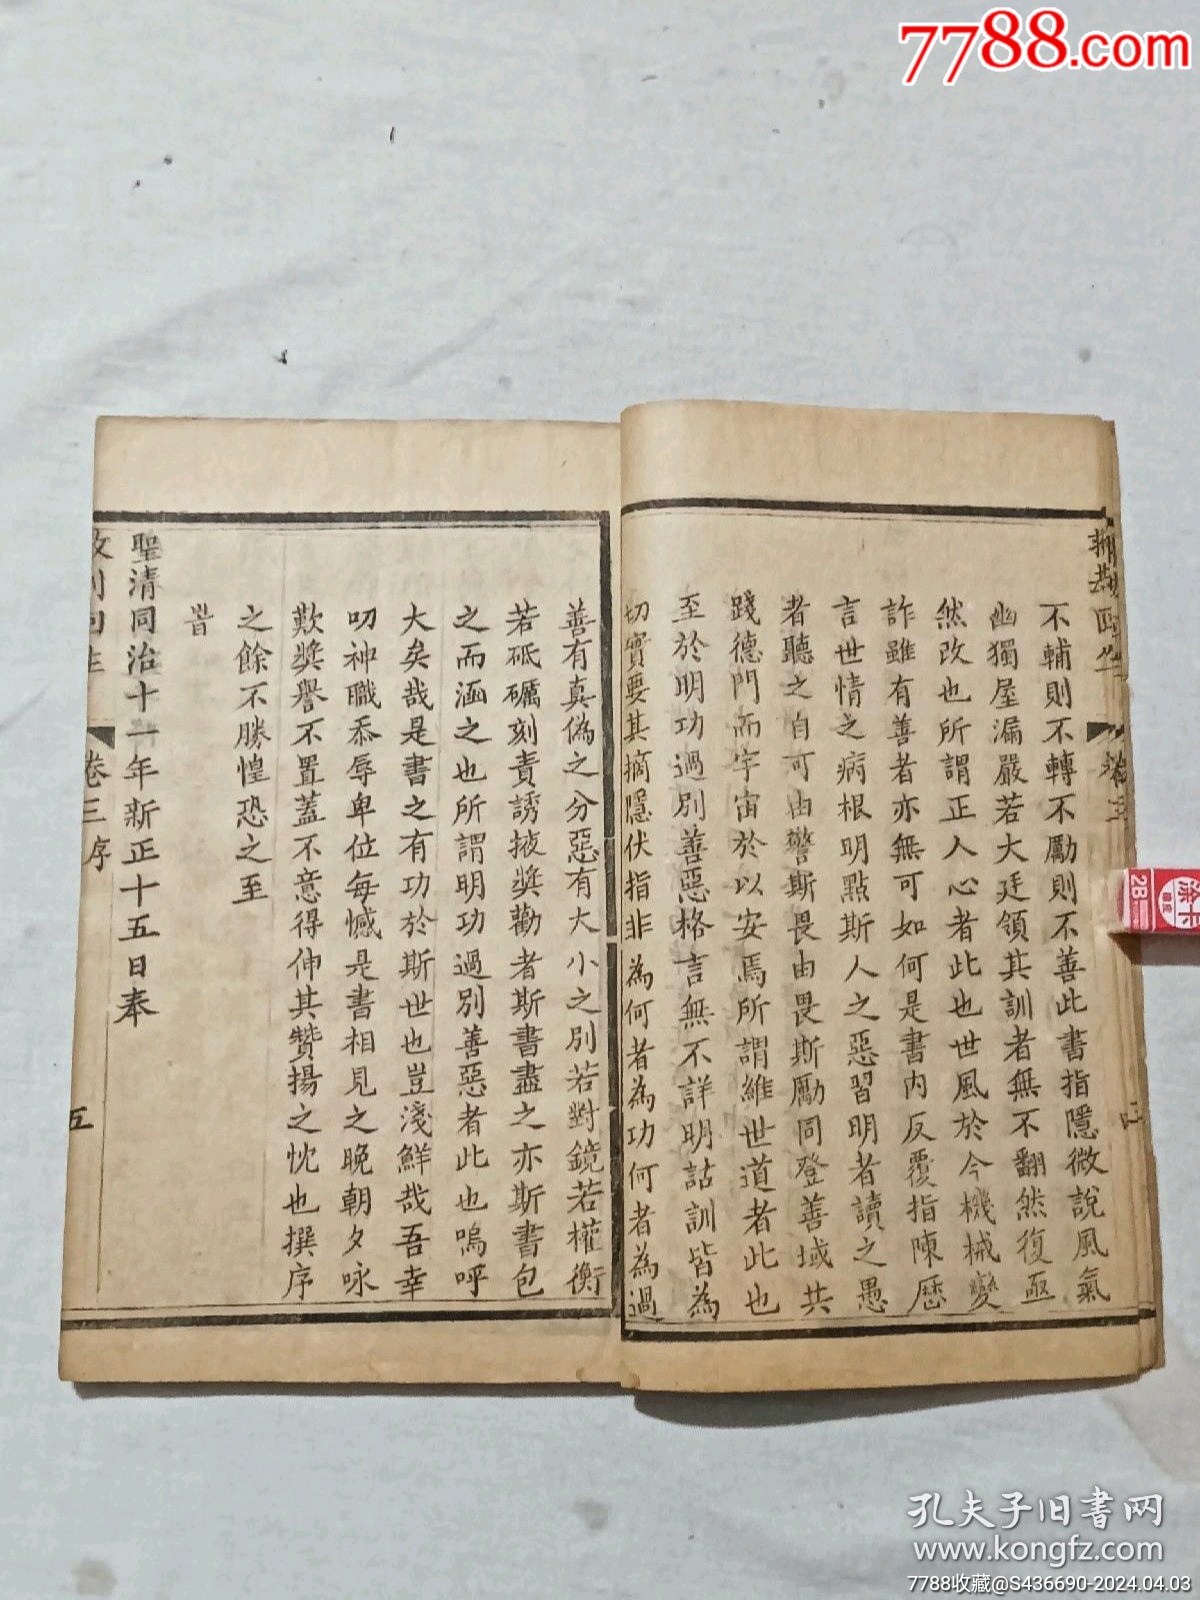 7788.com
不輔則不轉不勵則不善此書指隱微說風氣
幽獨屋漏嚴若大廷領其訓者無不翻然復亟
然改也所謂正人心者此也世風於今機械變
詐雖有善者亦無可如何是書内反覆指陳歷
言世情之病根明點斯人之惡習明者讀之愚
者聽之自可由警斯畏由畏斯勵同登善域共
踐德門而宇宙於以安焉所謂維世道者此也
至於明功過別善惡格言無不詳明詁訓皆為
切實要其摘隱伏指非為何者為功何者為過
善有真偽之分惡有大小之別若對鏡若權衡
若砥礪刻責誘掖獎勸者斯書盡之亦斯書包
之而涵之也所謂明功過別善惡者此也嗚呼
大矣哉是書之有功於斯世也豈淺鮮哉吾幸
叨神職忝辱卑位每憾是書相見之晚朝夕咏
歎獎譽不置蓋不意得伸其贊揚之忱也撰序
之餘不勝惶恐之至
旹
聖清同治十一年新正十五日奉
回生 卷三序 五
2B
孔夫子旧书网
www.kongfz.com
7788收藏@S436690-2024.04.03